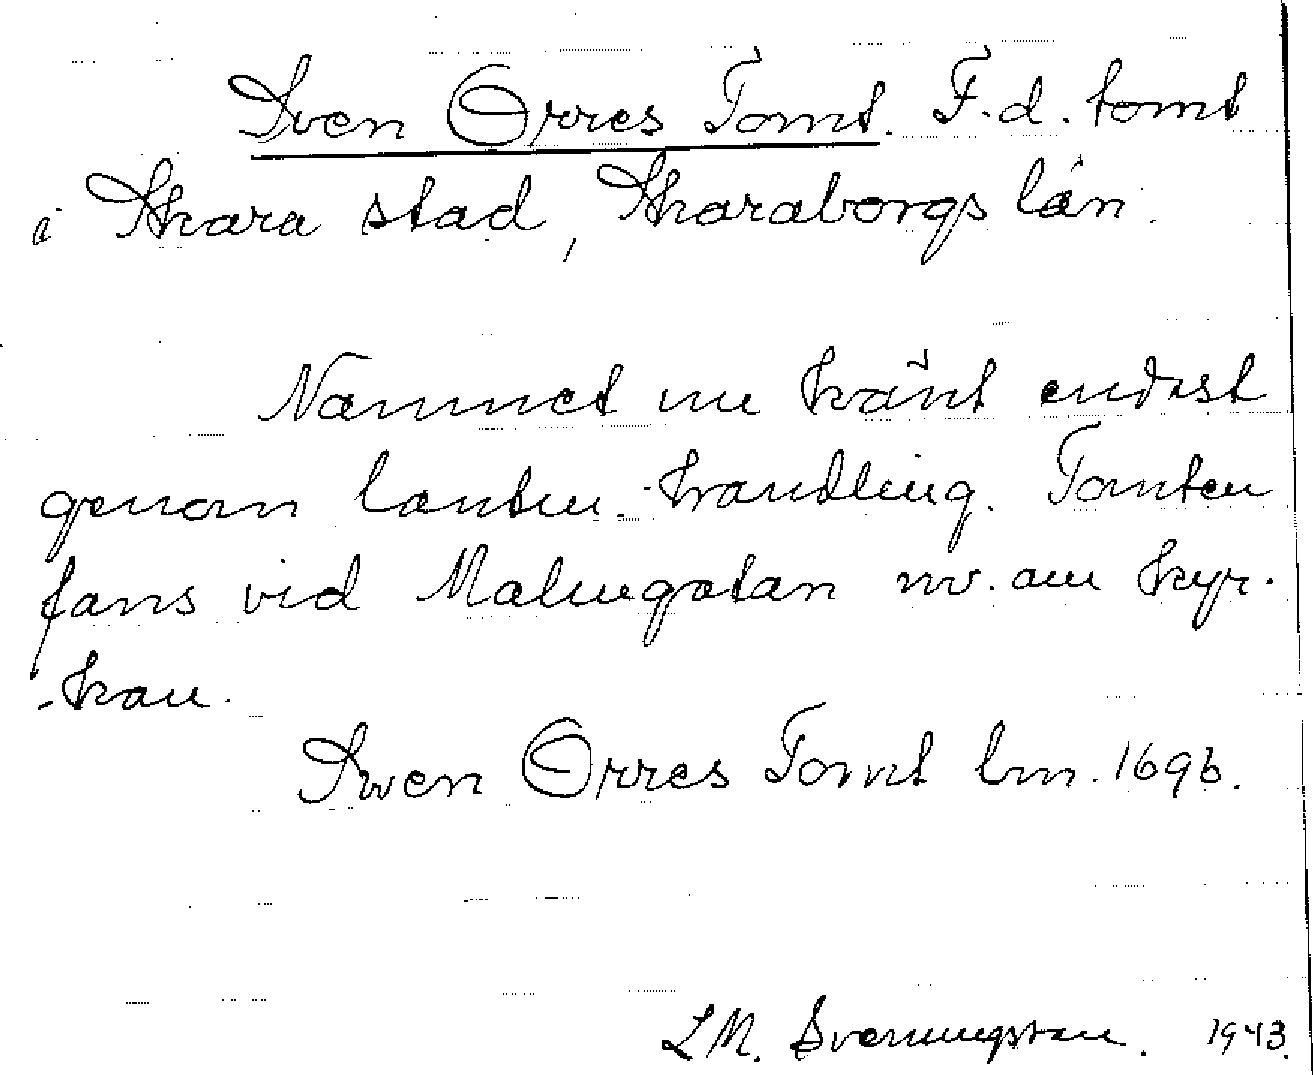 Sven Orres Tomt. F.d. tomt
i Skara stad, Skaraborgs län.
Namnet nu känt endast
genom lantm.-handling. Tomten
fans vid Malmgatan nv. om kyr-
-kan.
Swen Orres Tomt lm. 1696.
L M. Svenungsson. 1943.